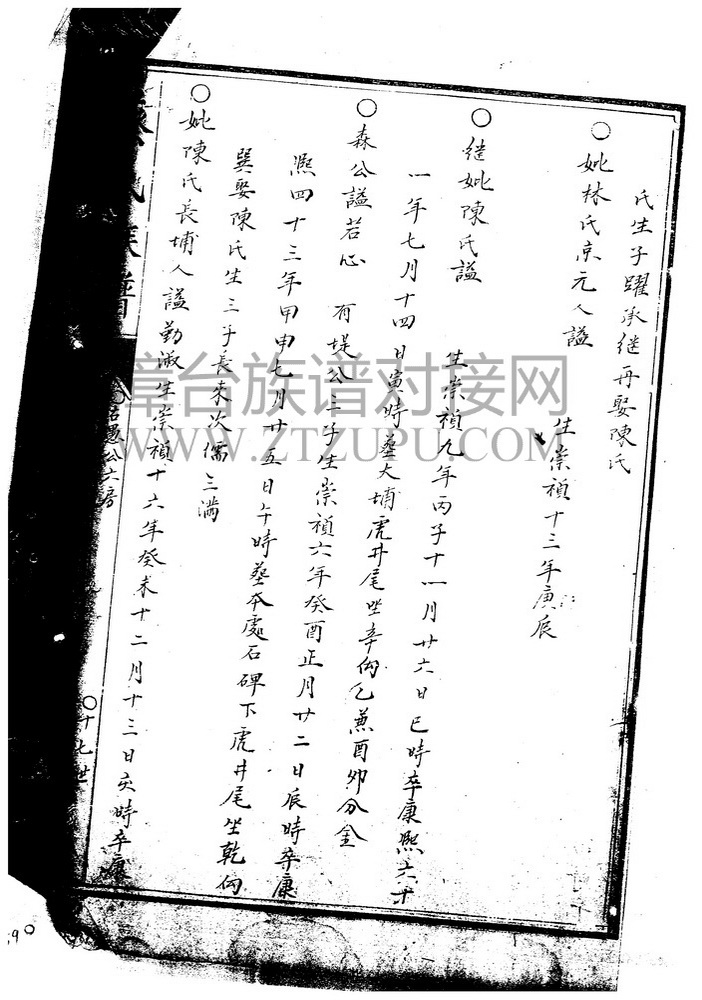 氏生子躍承继再娶陳氏
○妣林氏京元人謚
生崇禎十三年庚辰
○继妣陳氏謚
生崇禎九年丙子十一月廿六日巳時卒康熙六十
一年七月十四日寅時葬大埔虎井尾坐辛向乙兼酉卯分金
○森公謚若心
有堤公三子生崇禎六年癸酉正月廿二日辰時卒康
熙四十三年甲申七月廿五日午時葬本處石碑下虎井尾坐乾向
巽娶陳氏生三子長來次儒三满
○妣陳氏長埔人謚勤淑生崇禎十六年癸未十二月十三日亥時卒康
氏族譜
愚公六房
○十七世
90
章台族谱对接网
WWW.ZTZUPU.COM